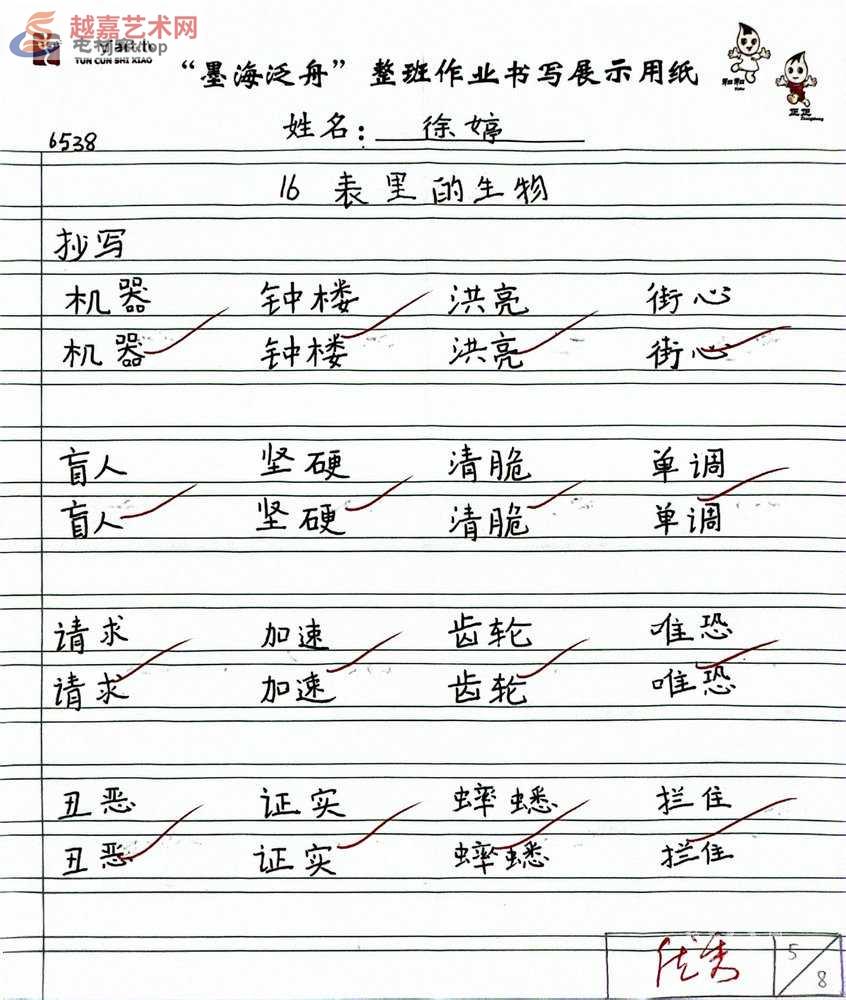 越嘉艺术网
yjart.top
TUN CUN SHI XIAO
“墨海泛舟”整班作业书写展示用纸
和和
正正
姓名：徐婷
6538
16 表里的生物
抄写
机器 钟楼 洪亮 街心
机器 钟楼 洪亮 街心
盲人 坚硬 清脆 单调
盲人 坚硬 清脆 单调
请求 加速 齿轮 唯恐
请求 加速 齿轮 唯恐
丑恶 证实 蟑蟋 拦住
丑恶 证实 蟑蟋 拦住
优秀 5/8